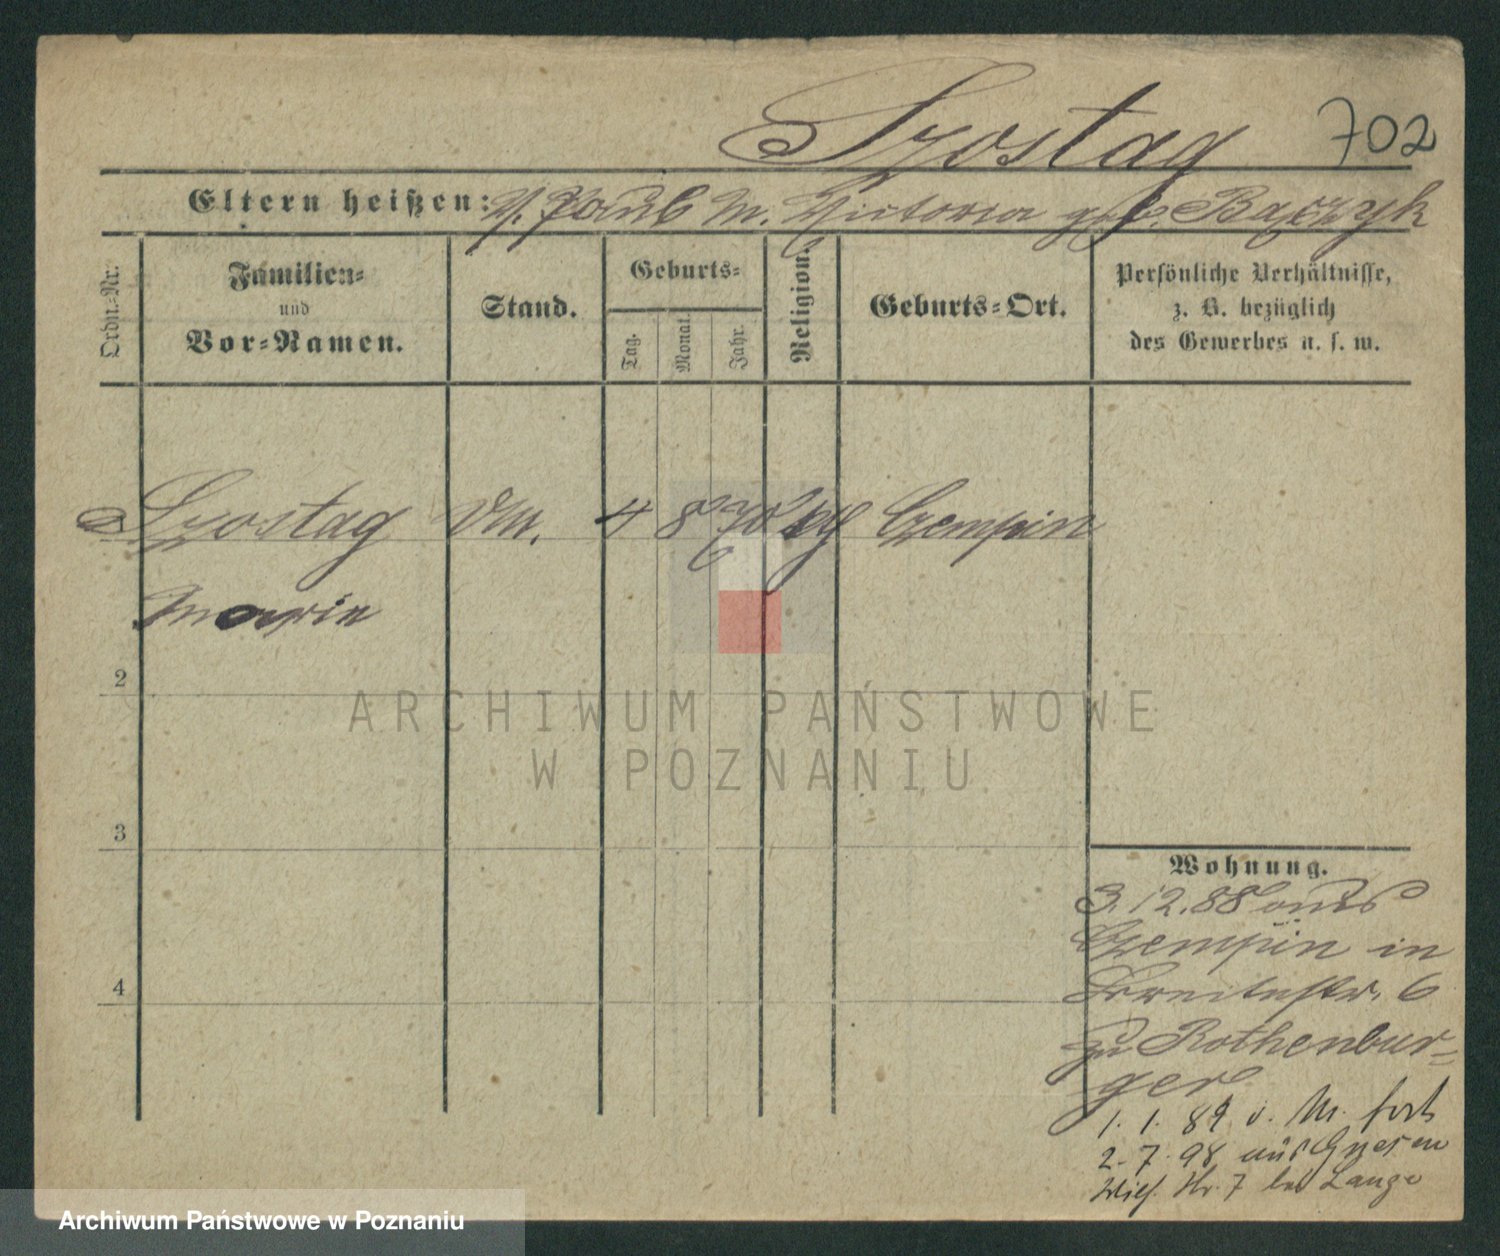 Szostag 702
Eltern heißen: V. Jakub M. Victoria geb. Bączyk
Ordn.-Nr.
Familien-
und
Vor-Namen.
Stand.
Geburts-
Tag.
Monat.
Jahr.
Religion.
Geburts-Ort.
Persönliche Verhältnisse,
z. B. bezüglich
des Gewerbes u. s. w.
Szostag 4 8 70 Czempin
Marie
2
3
4
Wohnung.
3.12.88 aus
Czempin in
Breitestr. 6
zu Rothenbur-
ger
1. 1. 89 o. M. fort
2. 7. 98 aus Gnesen
7 bei Lange
ARCHIWUM PAŃSTWOWE
W POZNANIU
Archiwum Państwowe w Poznaniu